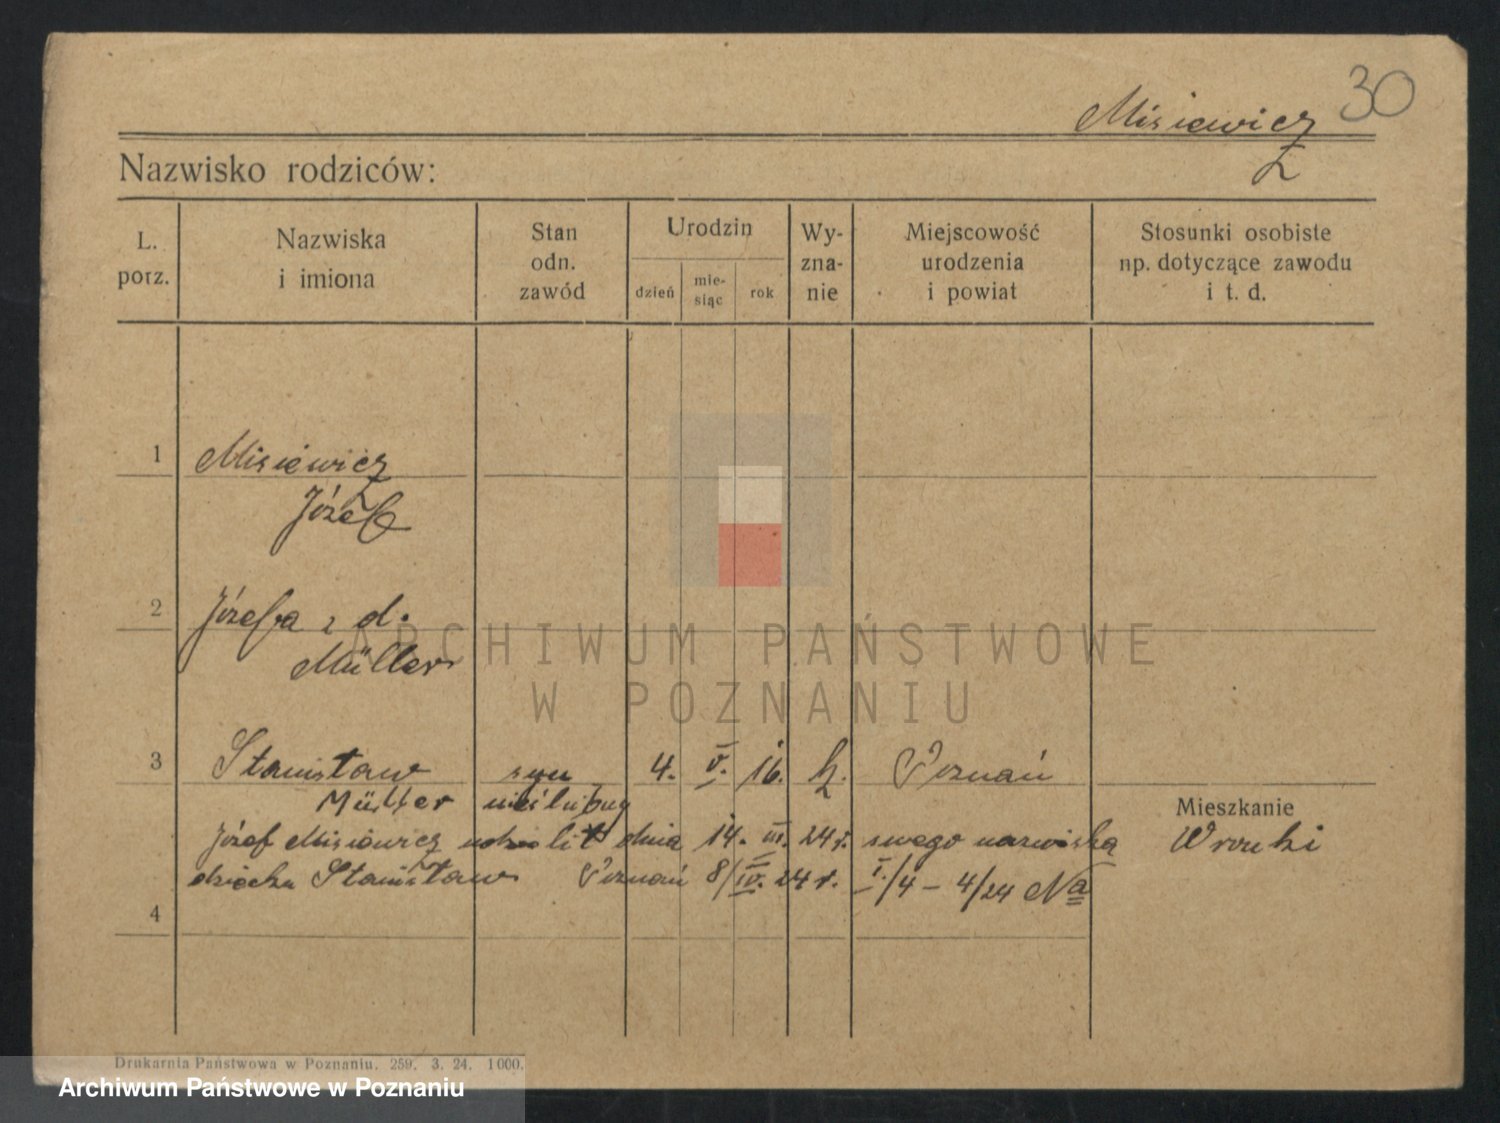 30
Misiewicz
Nazwisko rodziców:
L. porz.
Nazwiska i imiona
Stan odn. zawód
Urodzin
dzień
mie-
siąc
rok
Wy-
zna-
nie
Miejscowość urodzenia i powiat
Stosunki osobiste np. dotyczące zawodu i t. d.
1 Misiewicz
Józef
2 Józefa z d.
Müller
3 Stanisław syn 4. V. 16. k. Poznań
Müller nieślubny
Mieszkanie
Józef Misiewicz udzielił dnia 14. III. 24 r. swego nazwiska Wronki
dziecku Stanisław Poznań 8/IV. 24 r. I./4 – 4/24 Na
4
ARCHIWUM PAŃSTWOWE
W POZNANIU
Drukarnia Państwowa w Poznaniu. 259. 3. 24. 1000.
Archiwum Państwowe w Poznaniu